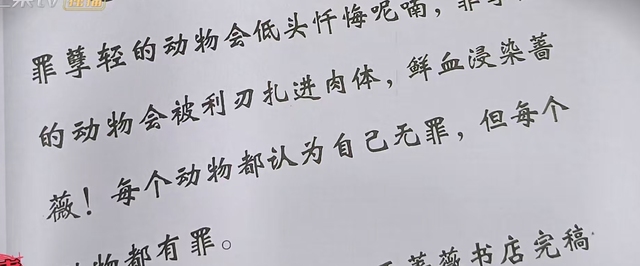 TV 直播
罪孽轻的动物会低头忏悔呢喃，罪孽
的动物会被利刃扎进肉体，鲜血浸染蔷
薇！每个动物都认为自己无罪，但每个
物都有罪。
蔷薇书店完稿